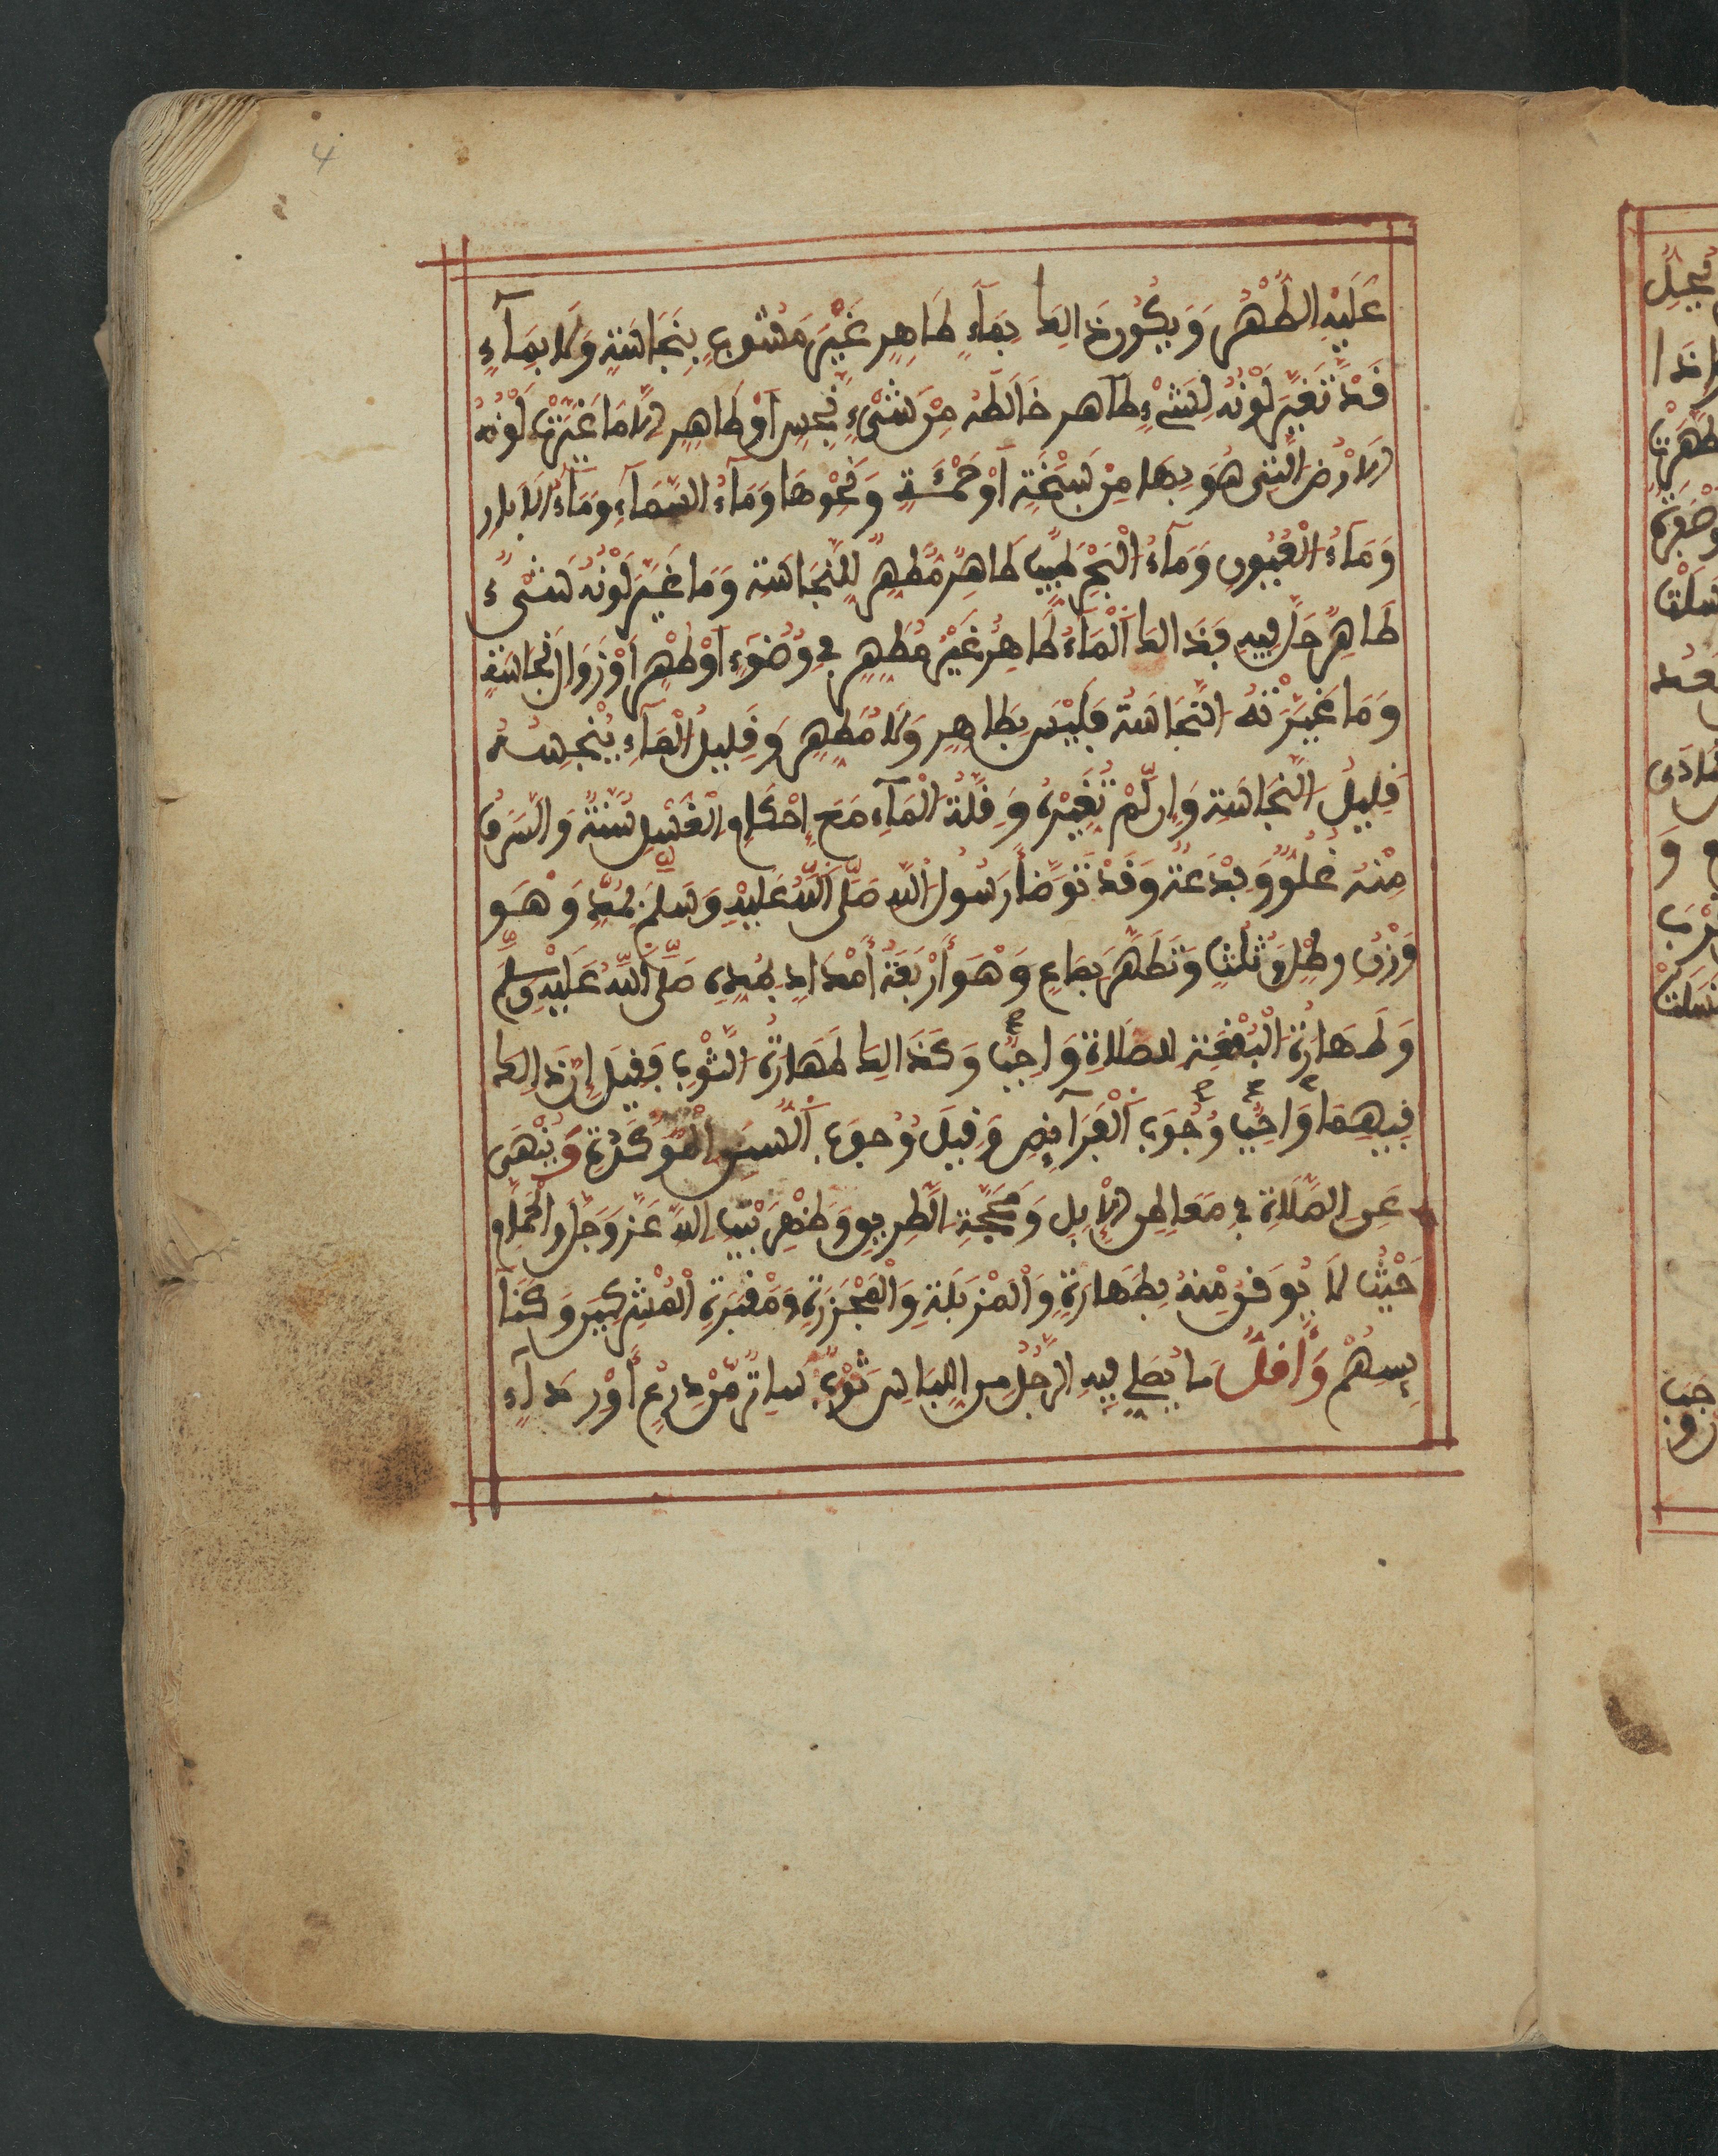 4
عَلَيْهِ الطُّهْرُ وَيَكُونُ ذَالِكَ بِمَآءٍ طَاهِرٍ غَيْرِ مَشُوبٍ بِنَجَاسَةٍ وَلَا بِمَآءٍ
قَدْ تَغَيَّرَ لَوْنُهُ لِشَيْءٍ طَاهِرٍ خَالَطَهُ مِن شَيْءٍ نَّجِسٍ أَوْ طَاهِرٍ إِلَّا مَا غَيَّرَتْ لَوْنَهُ
الْأَرْضُ الَّتِي هُوَ بِهَا مِن سَبْخَةٍ أَوْ حَمْئَةٍ وَنَحْوِهَا وَمَآءُ السَّمَآءِ وَمَآءُ الْأَبَارِ
وَمَآءُ الْعُيُونِ وَمَآءُ الْبَحْرِ طَيِّبٌ طَاهِرٌ مُّطَهِّرٌ لِّلنَّجَاسَةِ وَمَا غَيَّرَ لَوْنَهُ شَيْءٌ
طَاهِرٌ حَلَّ فِيهِ فَذَالِكَ الْمَآءُ طَاهِرٌ غَيْرُ مُطَهِّرٍ فِي وُضُوءٍ أَوْ طُهْرٍ أَوْ زَوَالِ نَجَاسَةٍ
وَمَا غَيَّرَتْهُ النَّجَاسَةُ فَلَيْسَ بِطَاهِرٍ وَلَا مُطَهِّرٍ وَقَلِيلُ الْمَآءِ يُنَجِّسُهُ
قَلِيلُ النَّجَاسَةِ وَإِن لَّمْ تُغَيِّرْهُ وَقِلَّةُ الْمَآءِ مَعَ إِحْكَامِ الْغَسْلِ سُنَّةٌ وَالسَّرَفُ
مِنْهُ غُلُوٌّ وَبِدْعَةٌ وَقَدْ تَوَضَّأَ رَسُولُ اللَّهِ صَلَّى اللَّهُ عَلَيْهِ وَسَلَّمَ بِمُدٍّ وَهُوَ
وَزْنُ رِطْلٍ وَثُلُثٍ وَتَطَهَّرَ بِصَاعٍ وَهُوَ أَرْبَعَةُ أَمْدَادٍ بِمُدِّهِ صَلَّى اللَّهُ عَلَيْهِ وَسَلَّمَ
وَطَهَارَةُ الْبُقْعَةِ لِلصَّلَاةِ وَاجِبَةٌ وَكَذَالِكَ طَهَارَةُ الثَّوْبِ فَقِيلَ إِنَّ ذَالِكَ
فِيهِمَا وَاجِبٌ وُجُوبَ الْفَرَآئِضِ وَقِيلَ وُجُوبَ السُّنَنِ الْمُؤَكَّدَةِ وَيُنْهَى
عَنِ الصَّلَاةِ فِي مَعَاطِنِ الْإِبِلِ وَمَحَجَّةِ الطَّرِيقِ وَظَهْرِ بَيْتِ اللَّهِ عَزَّ وَجَلَّ وَالْحَمَّامِ
حَيْثُ لَا يُوقَنُ مِنْهُ بِطَهَارَةٍ وَالْمَزْبَلَةِ وَالْمَجْزَرَةِ وَمَقْبَرَةِ الْمُشْرِكِينَ وَكَنَا
ئِسِهِمْ وَأَقَلُّ مَا يُصَلِّي فِيهِ الرَّجُلُ مِنَ اللِّبَاسِ ثَوْبٌ سَاتِرٌ مِّن دِرْعٍ أَوْ رِدَآءٍ